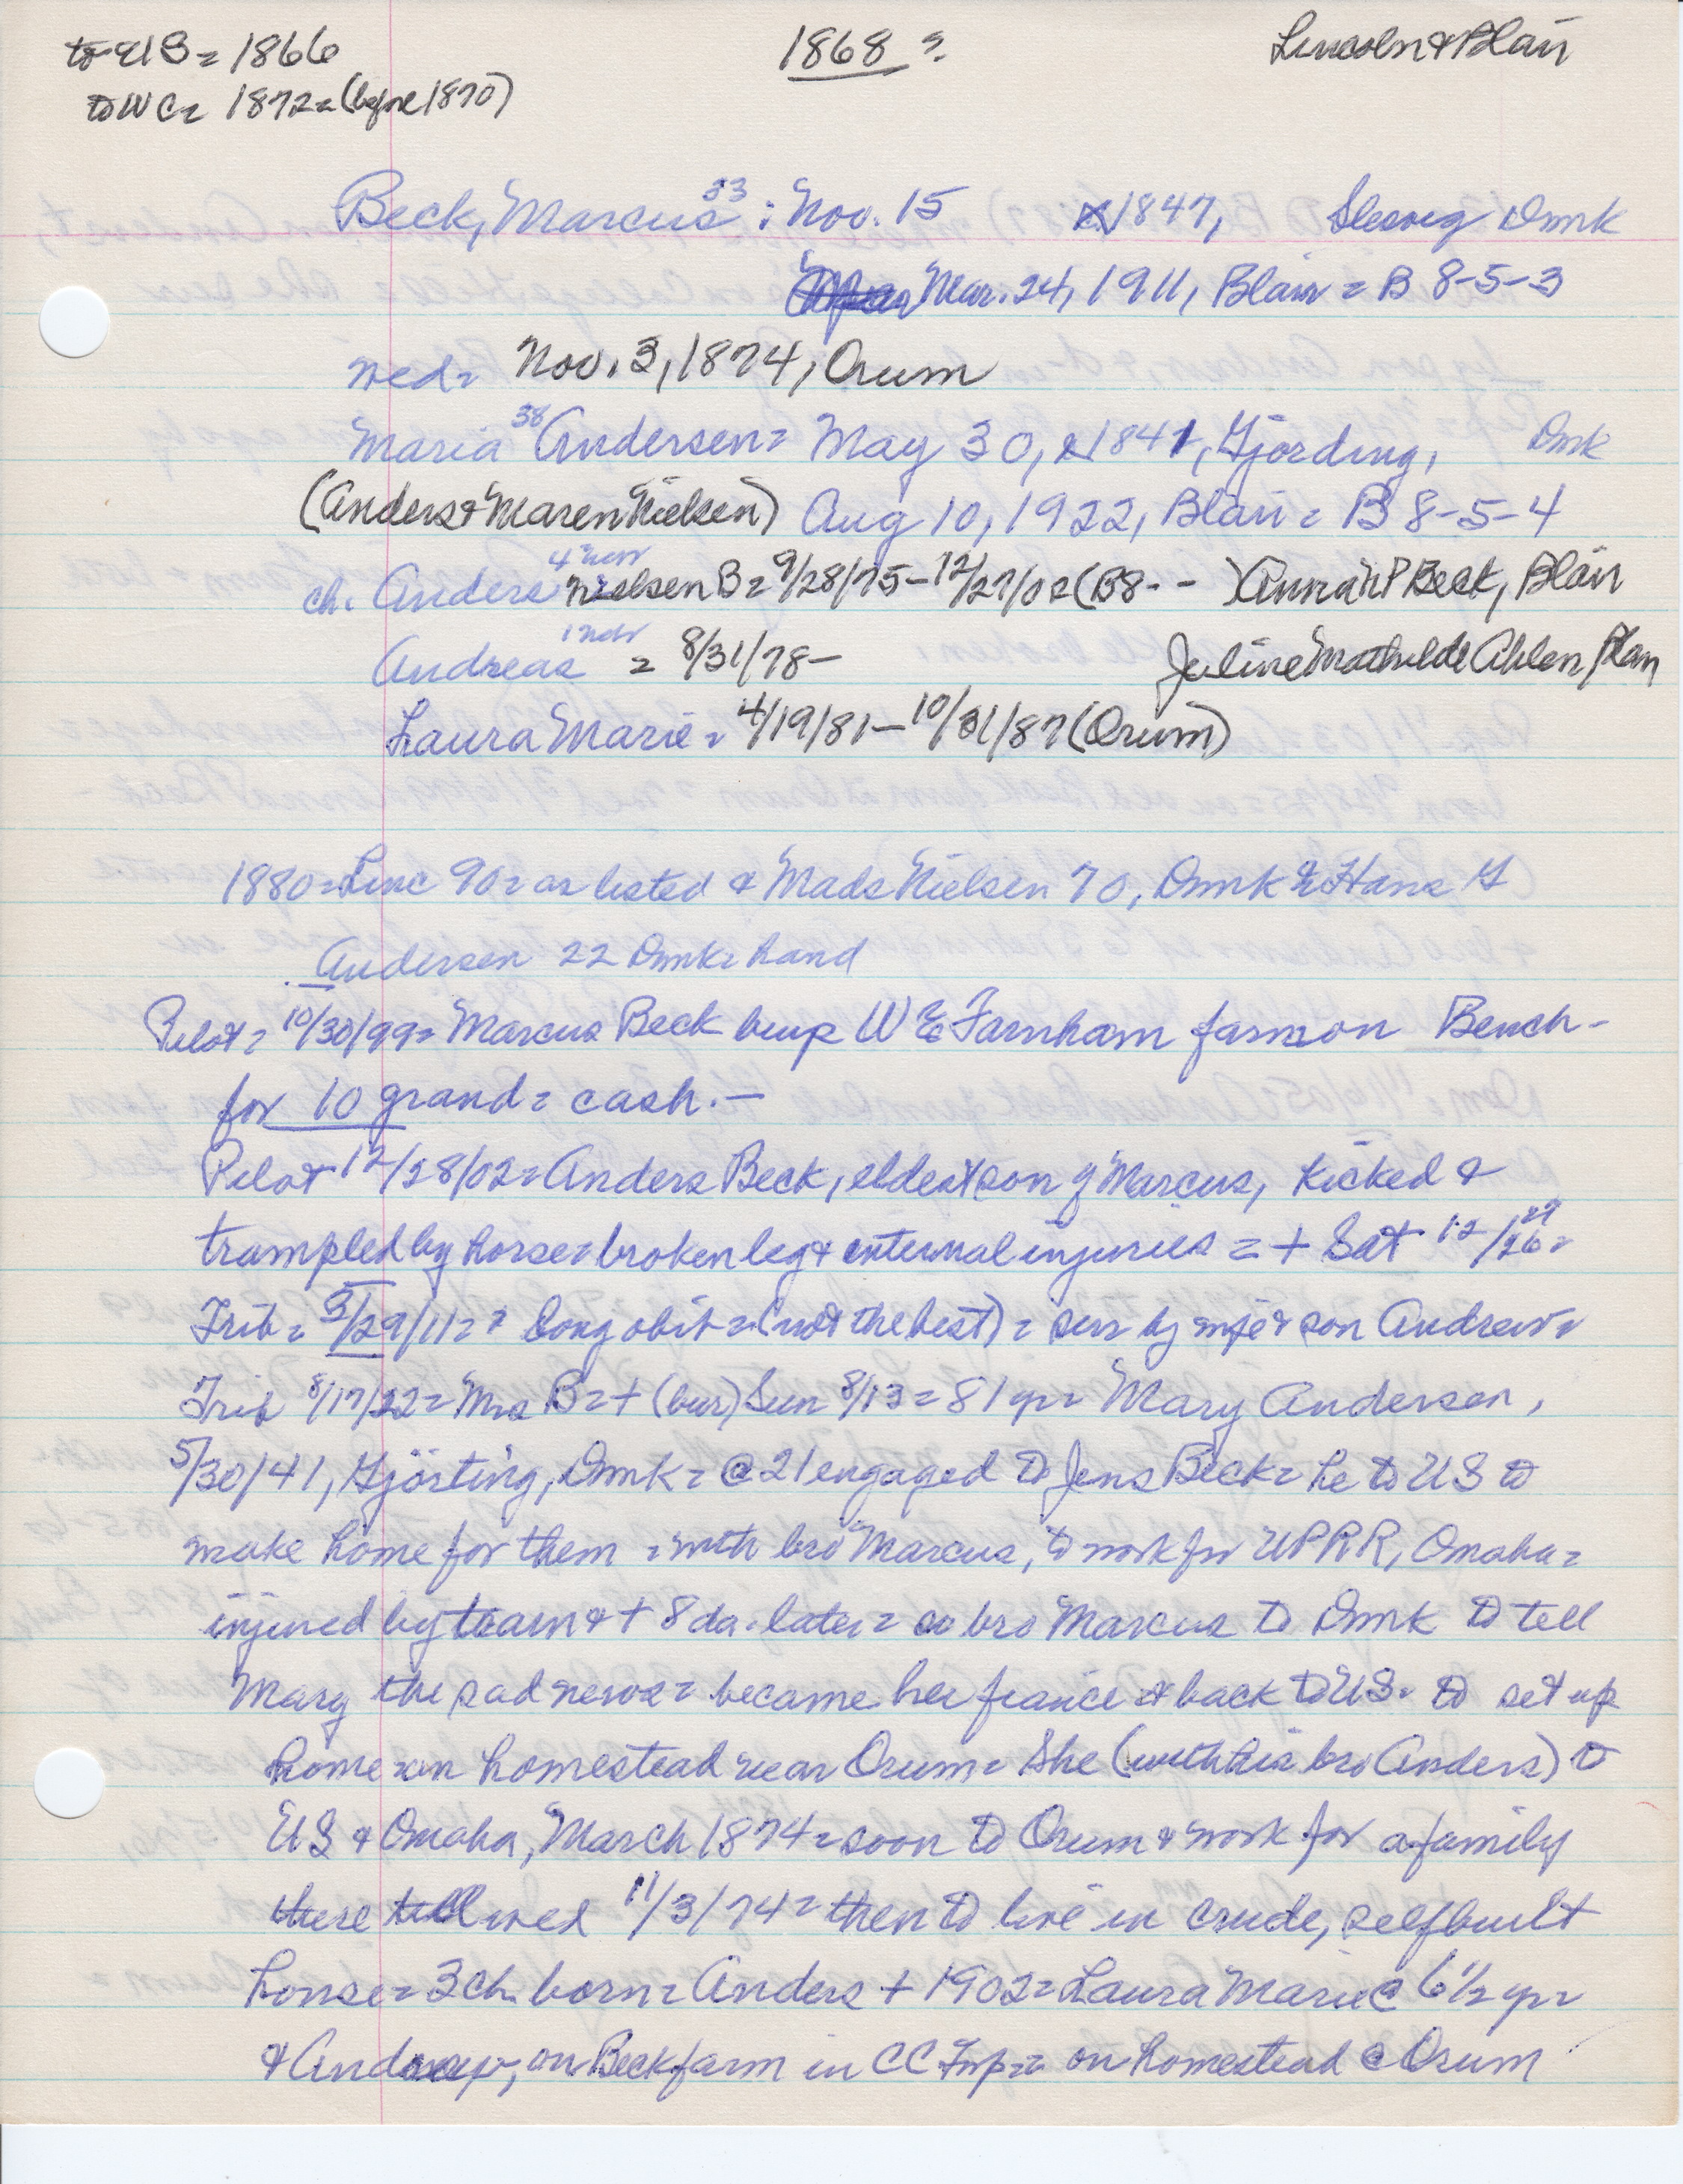 to US = 1866
1868 ?
Lincoln & Blair
to WC = 1872 = (before 1870)
Beck, Marcus 33 : Nov. 15 1847, Slesvig Dmk
Mar. 24, 1911, Blair = B 8-5-3
wed = Nov. 3, 1874, Orum
Maria 38 Andersen = May 30, 1841, Gjording, Dmk
(Anders & Maren Nielsen) Aug 10, 1922, Blair = B 8-5-4
ch. Anders 4 Nebr Nielsen B = 9/28/75 - 12/27/02 (B8 - - ) Anna P Beck, Blair
Andreas 1 Nebr = 8/31/78 - Juline Mathilde Ahlen, Blair
Laura Marie = 4/19/81 - 10/31/87 (Orum)
1880 = Linc 90 = as listed & Mads Nielsen 70, Dmk & Hans G
Andersen 22 Dmk = hand
Pilot = 10/30/99 = Marcus Beck buys W E Farnham farm on Bench -
for 10 grand = cash. -
Pilot 12/28/02 = Anders Beck, eldest son of Marcus, kicked &
trampled by horse = broken leg & internal injuries = + Sat 12/26 27 =
Trib = 3/29/11 = long obit = (not the best) = surv by wife & son Andrew =
Trib 8/17/22 = Mrs B = + (bur) Sun 8/13 = 81 yr = Mary Andersen,
5/30/41, Gjörting, Dmk = @ 21 engaged to Jens Beck = he to US to
make home for them = with bro Marcus, to work for UPRR, Omaha =
injured by team & + 8 da. later = so bro Marcus to Dmk to tell
Mary the sad news = became her fiance & back to US = to set up
home on homestead near Orum = She (with his bro Anders) to
US & Omaha, March 1874 = soon to Orum & work for a family
there till wed 11/3/74 = then to live in crude, selfbuilt
house = 3 ch. born = Anders + 1902 = Laura Marie @ 6 1/2 yr =
& Andrew, on Beck farm in CC Twp = on homestead @ Orum